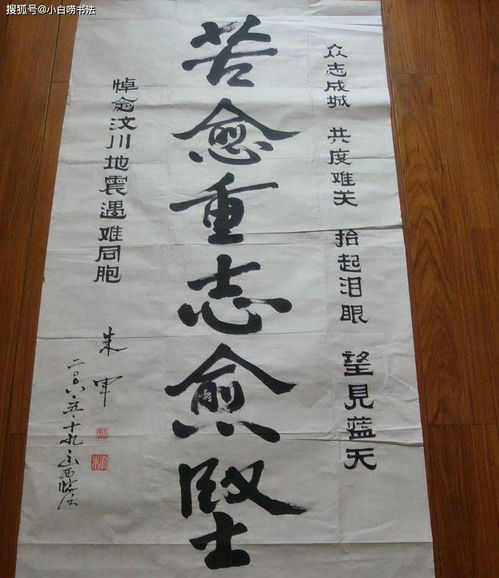 搜狐号@小白唠书法
众志成城 共度难关 抬起泪眼 望見蓝天
苦愈重志愈堅
悼念汶川地震遇难同胞
朱军
二〇〇八五十九